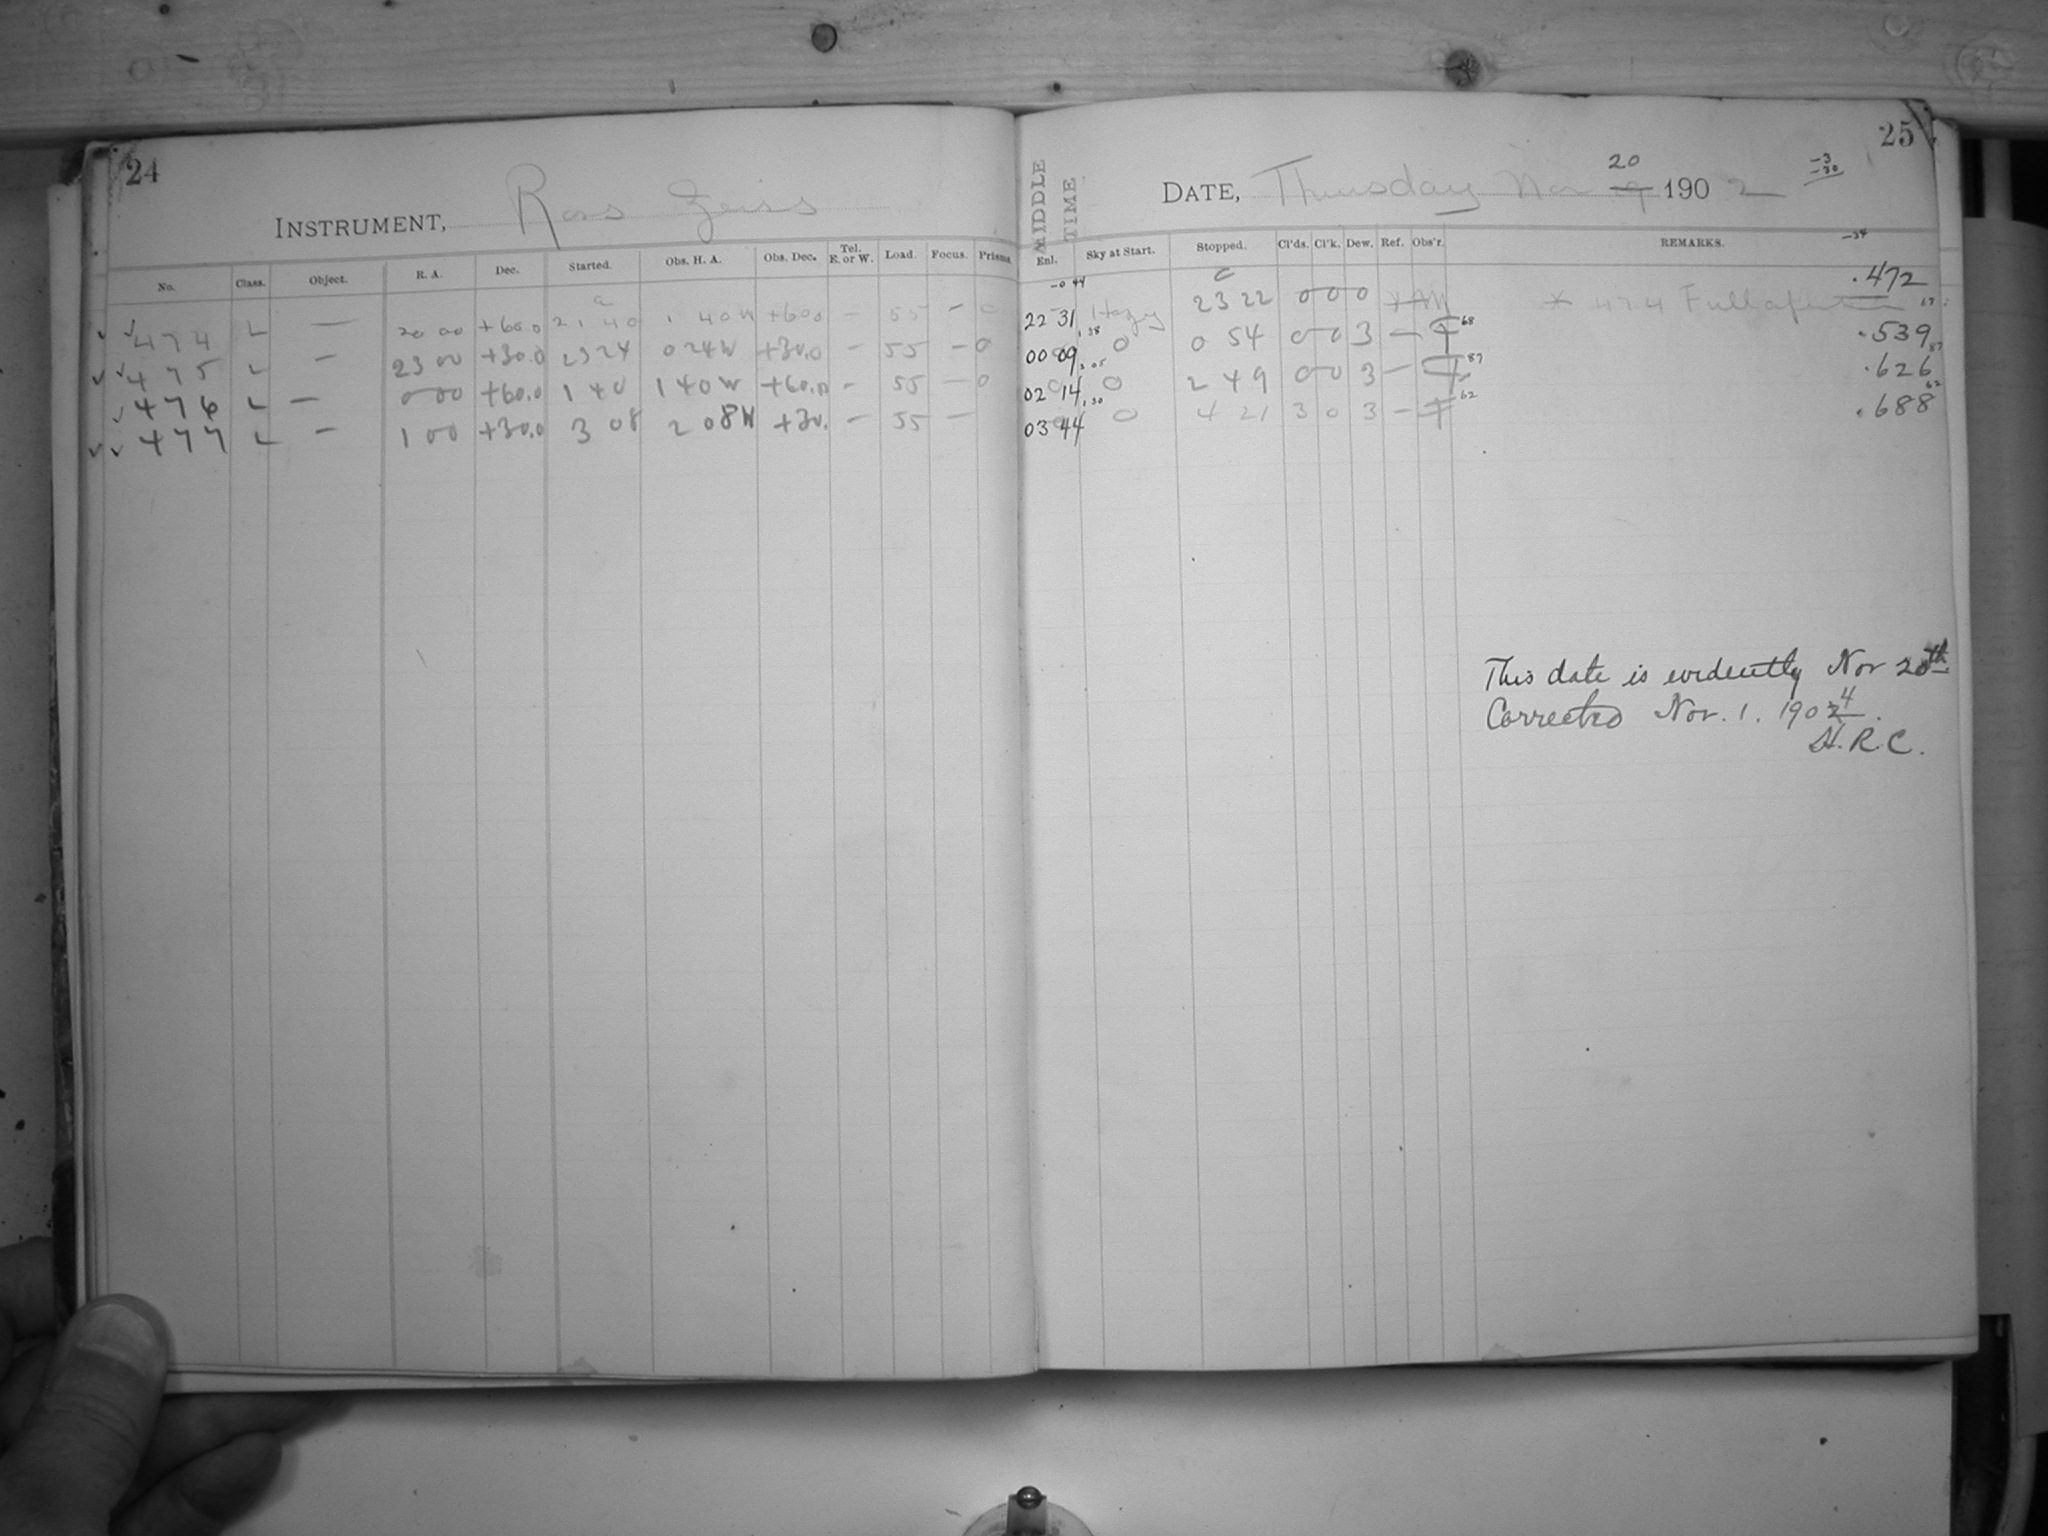 24
INSTRUMENT, Ross Zeiss
No. Class. Object. R. A. Dec. Started. Obs. H. A. Obs. Dec. Tel. E. or W. Load. Focus. Prisms
474 L — 20 00 +60.0 21 40 1 40 W +60.0 — 55 — 0
475 L — 23 00 +30.0 23 24 0 24 W +30.0 — 55 — 0
476 L — 0 00 +60.0 1 40 1 40 W +60.0 — 55 — 0
477 L — 1 00 +30.0 3 08 2 08 W +30. — 55 —
25
MIDDLE TIME
20
DATE, Thursday Nov 19 1902
-3
-30
Enl. Sky at Start. Stopped. Cl'ds. Cl'k. Dew. Ref. Obs'r. REMARKS. -34
-0 44 .472
22 31 Hazy 23 22 0 0 0 * 474 Full aperture 67
1.38
00 09 0 0 54 0 0 3 — F 68 .539 87
2.05
02 14 0 2 49 0 0 3 — F 87 .626 62
1.30
03 44 0 4 21 3 0 3 — F 62 .688
This date is evidently Nov 20th.
Corrected Nov. 1. 1904.
H.R.C.